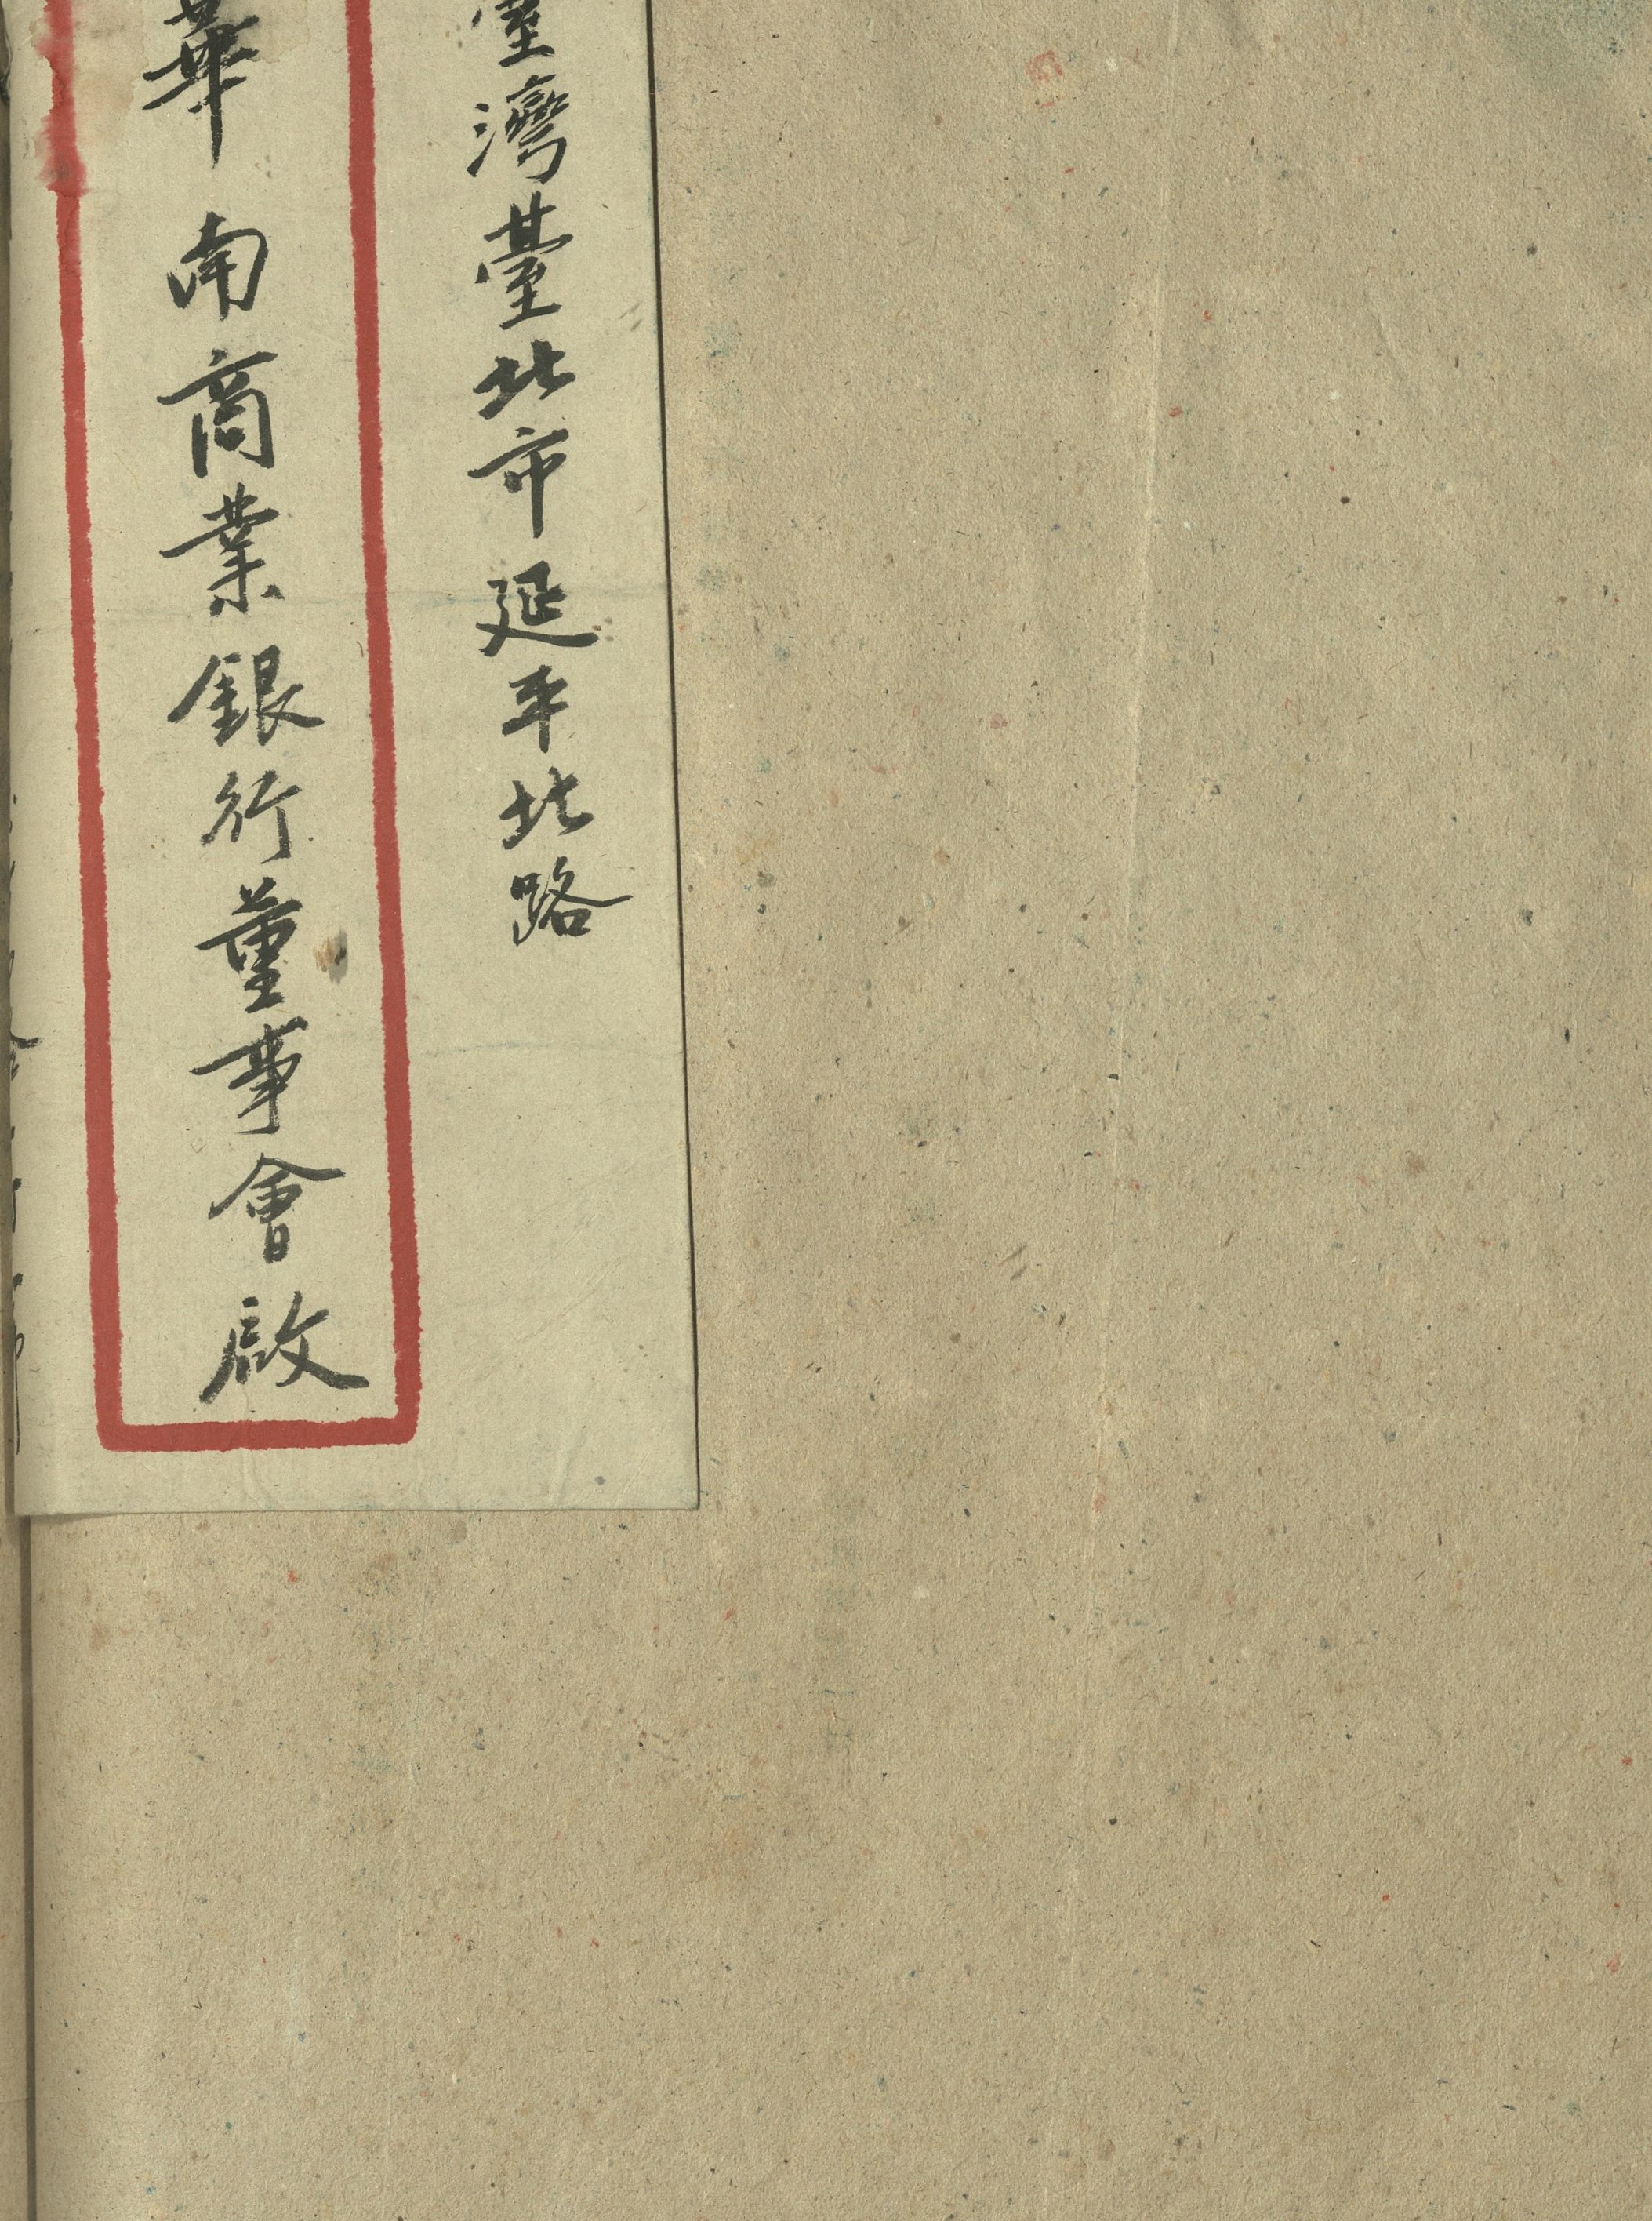 臺灣臺北市延平北路
華南商業銀行董事會啟